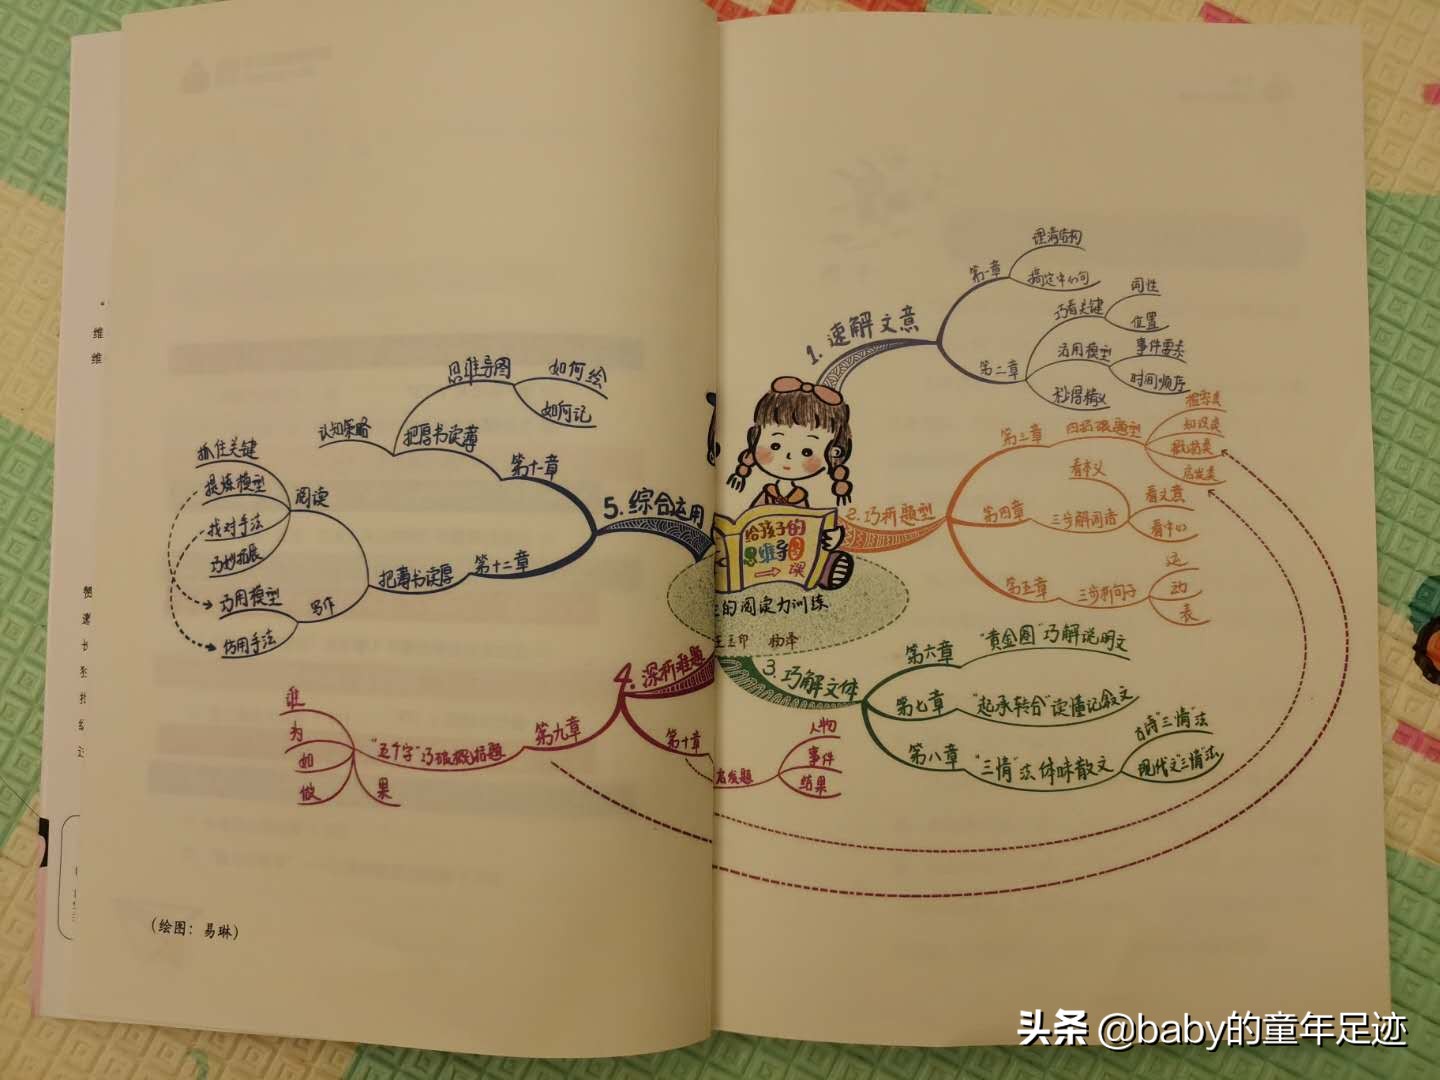 1. 速解文意
第一章
理清结构
搞定中心句
第二章
巧看关键
词性
位置
活用模型
事件要素
时间顺序
秒得情义
2. 巧析题型
第三章
四招破题型
检索类
知识类
概括类
启发类
第四章
三步解词语
看本义
看文意
看中心
第五章
三步析句子
运
动
表
给孩子的
思维导图
课
的阅读力训练
王玉印 杨泽
3. 巧解文体
第六章
“黄金圈”巧解说明文
第七章
“起承转合”读懂记叙文
第八章
“三情”法体味散文
古诗“三情”法
现代文“三情”法
4. 深析难题
第九章
“五个字”巧破概括题
谁
为
如
做
果
第十章
启发题
人物
事件
结果
5. 综合运用
第十一章
把厚书读薄
认知策略
思维导图
如何绘
如何记
第十二章
把薄书读厚
阅读
抓住关键
提炼模型
找对手法
巧妙拓展
写作
巧用模型
仿用手法
(绘图：易琳)
维
维
头条 @baby的童年足迹